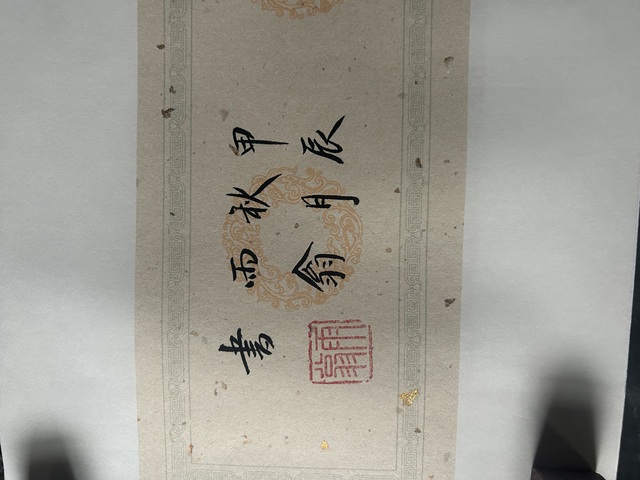 甲辰
秋月
雨翁
書